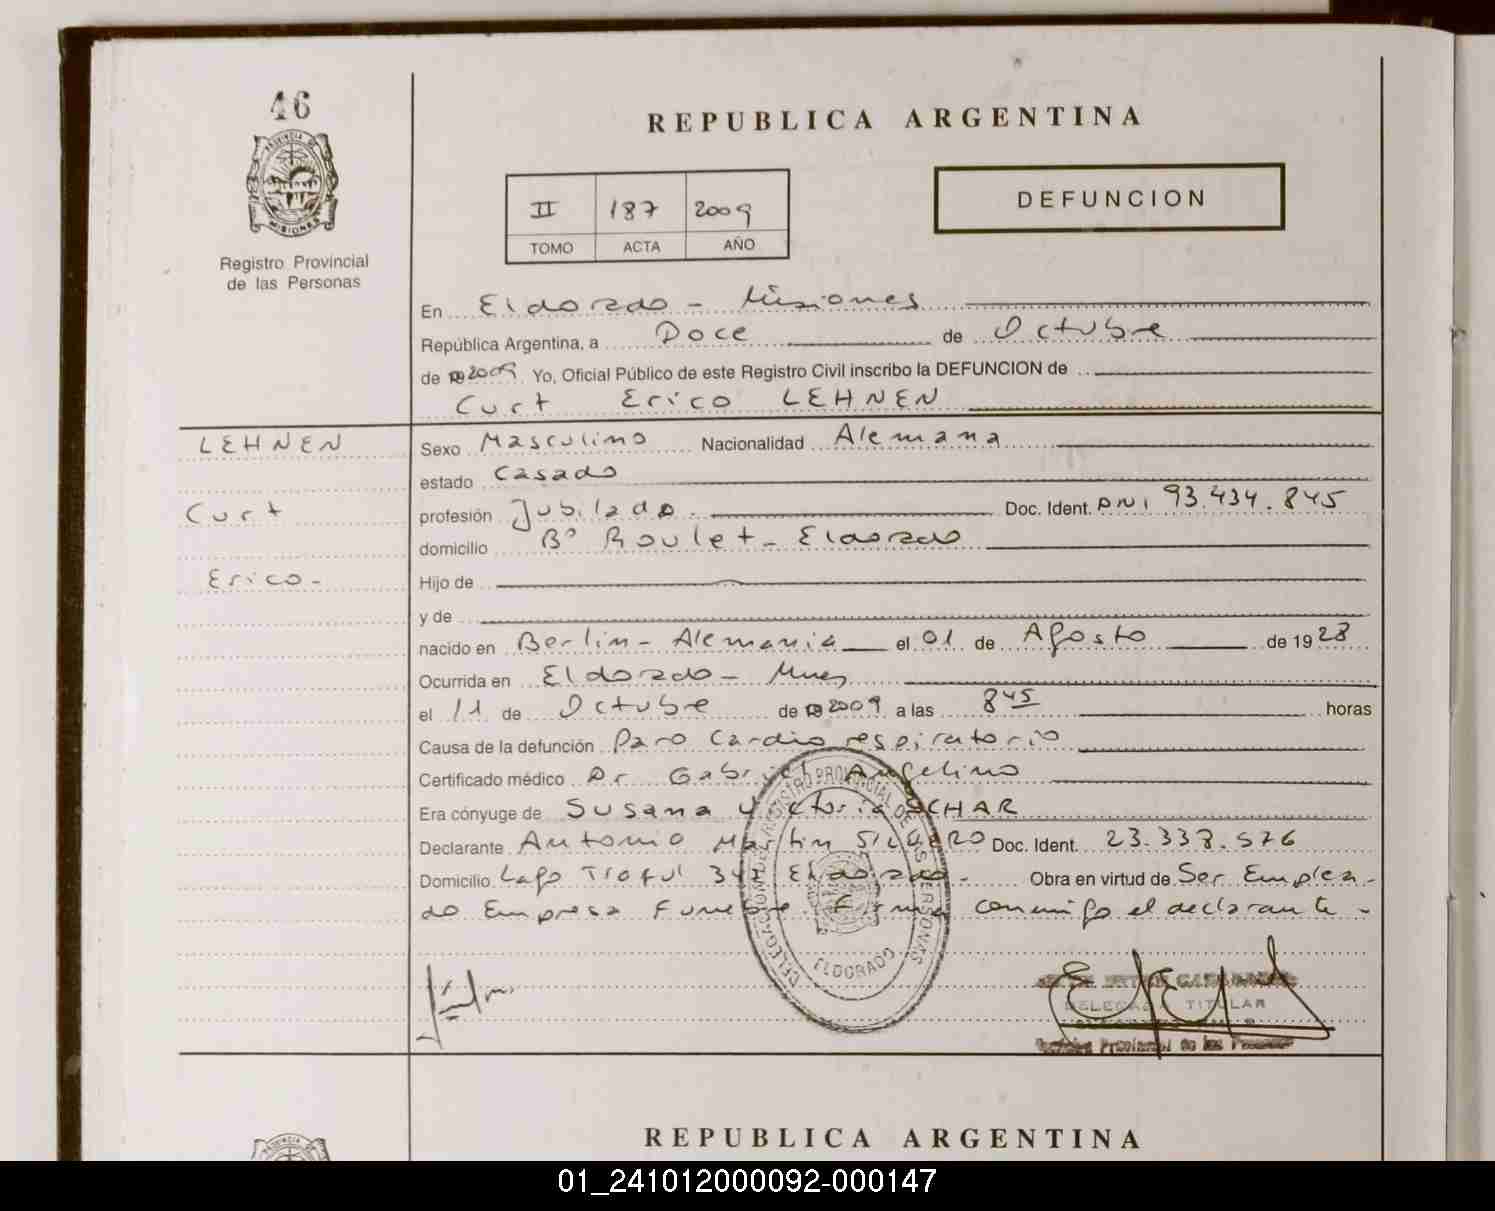 46
PROVINCIA DE
MISIONES
Registro Provincial
de las Personas
REPUBLICA ARGENTINA
II 187 2009
TOMO ACTA AÑO
DEFUNCION
En Eldorado - Misiones
República Argentina, a Doce de Octubre
de 2009 Yo, Oficial Público de este Registro Civil inscribo la DEFUNCION de
Curt Erico LEHNEN
LEHNEN
Curt
Erico -
Sexo Masculino Nacionalidad Alemana
estado Casado
profesión Jubilado - Doc. Ident. DNI 93.434.845
domicilio Bº Roulet - Eldorado
Hijo de
y de
nacido en Berlin - Alemania el 01 de Agosto de 1928
Ocurrida en Eldorado - Mnes
el 11 de Octubre de 2009 a las 8 45 horas
Causa de la defunción Paro Cardio respiratorio
Certificado médico Dr Gabriel Angelino
Era cónyuge de Susana Victoria
Declarante Antonio Martin SILVERO Doc. Ident. 23.338.576
Domicilio Lago Traful 347 Eldorado - Obra en virtud de Ser Emplea-
do Empresa Funebre. Firma conmigo el declarante -
DELEGACION DEL REGISTRO PROVINCIAL DE LAS PERSONAS
ELDORADO
DELEGADA TITULAR
Registro Provincial de las Personas
REPUBLICA ARGENTINA
PROVINCIA DE
01_241012000092-000147